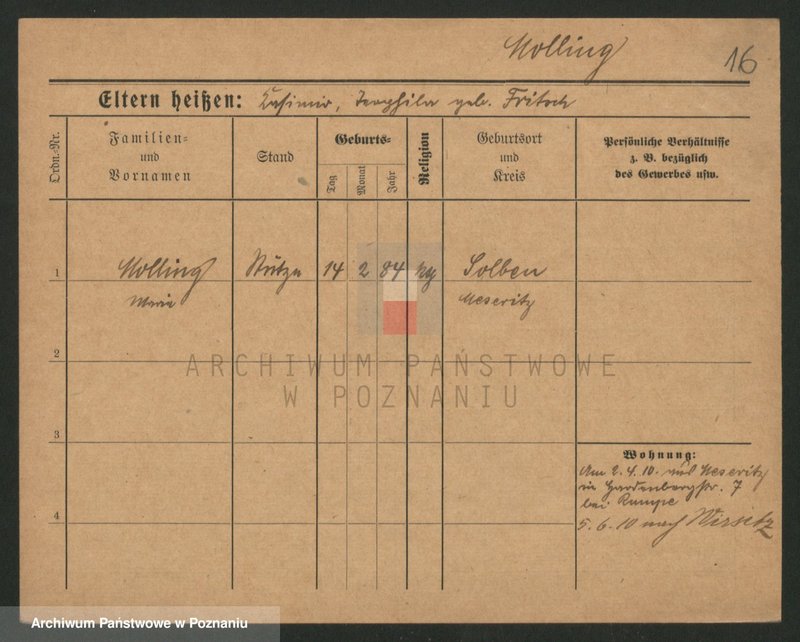 Molling
16
Eltern heißen: Kasimir, Teophila geb. Fritsch
Ordn.-Nr.
Familien- und Vornamen
Stand
Geburts-
Tag
Monat
Jahr
Religion
Geburtsort und Kreis
Persönliche Verhältnisse z. B. bezüglich des Gewerbes usw.
1
Molling
Stütze
14
2
84
Solben
Maria
Meseritz
2
ARCHIWUM PAŃSTWOWE
W POZNANIU
3
Wohnung:
Am 2.4.10. aus Meseritz
in Hardenbergstr. 7
bei Rumpe
4
5.6.10 nach Wirsitz
Archiwum Państwowe w Poznaniu